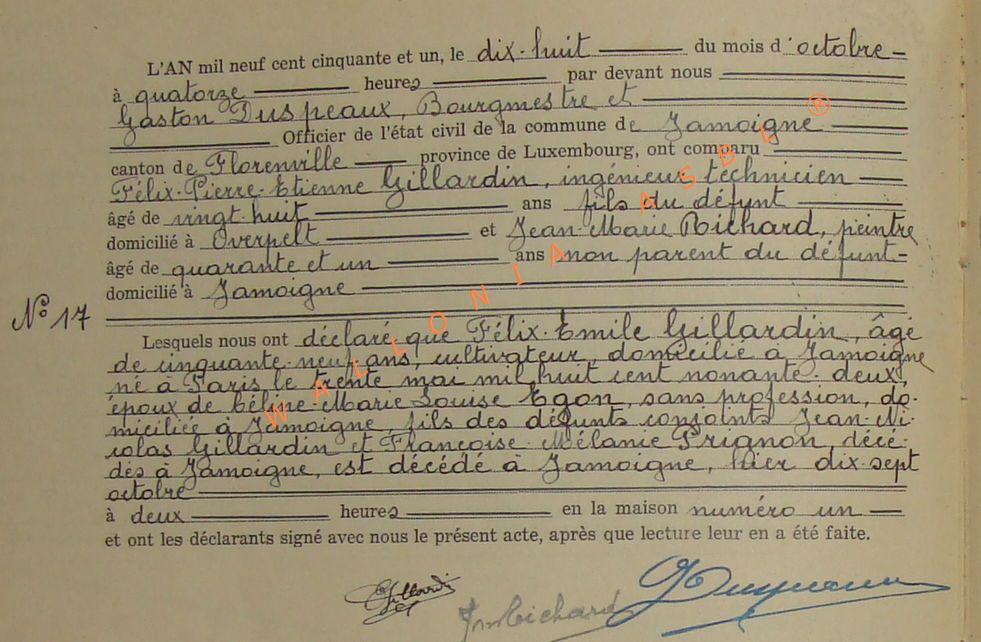 L'AN mil neuf cent cinquante et un, le dix-huit du mois d'octobre
à quatorze heures par devant nous
Gaston Duspeaux, Bourgmestre et
Officier de l'état civil de la commune de Jamoigne
canton de Florenville province de Luxembourg, ont comparu
Félix-Pierre-Etienne Gillardin, ingénieur technicien
âgé de vingt-huit ans fils du défunt
domicilié à Overpelt et Jean-Marie Richard, peintre
âgé de quarante et un ans non parent du défunt
domicilié à Jamoigne
N° 17
Lesquels nous ont déclaré que Félix-Emile Gillardin, âgé
de cinquante-neuf ans, cultivateur, domicilié à Jamoigne
né à Paris le trente mai mil huit cent nonante-deux,
époux de Céline-Marie Louise Egon, sans profession, do-
miciliée à Jamoigne, fils des défunts conjoints Jean-Ni-
colas Gillardin et Françoise-Mélanie Prignon, décé-
dés à Jamoigne, est décédé à Jamoigne, hier dix-sept
octobre
à deux heures en la maison numéro un
et ont les déclarants signé avec nous le présent acte, après que lecture leur en a été faite.
Gillardin
JmRichard
WALLONIA ASBL®